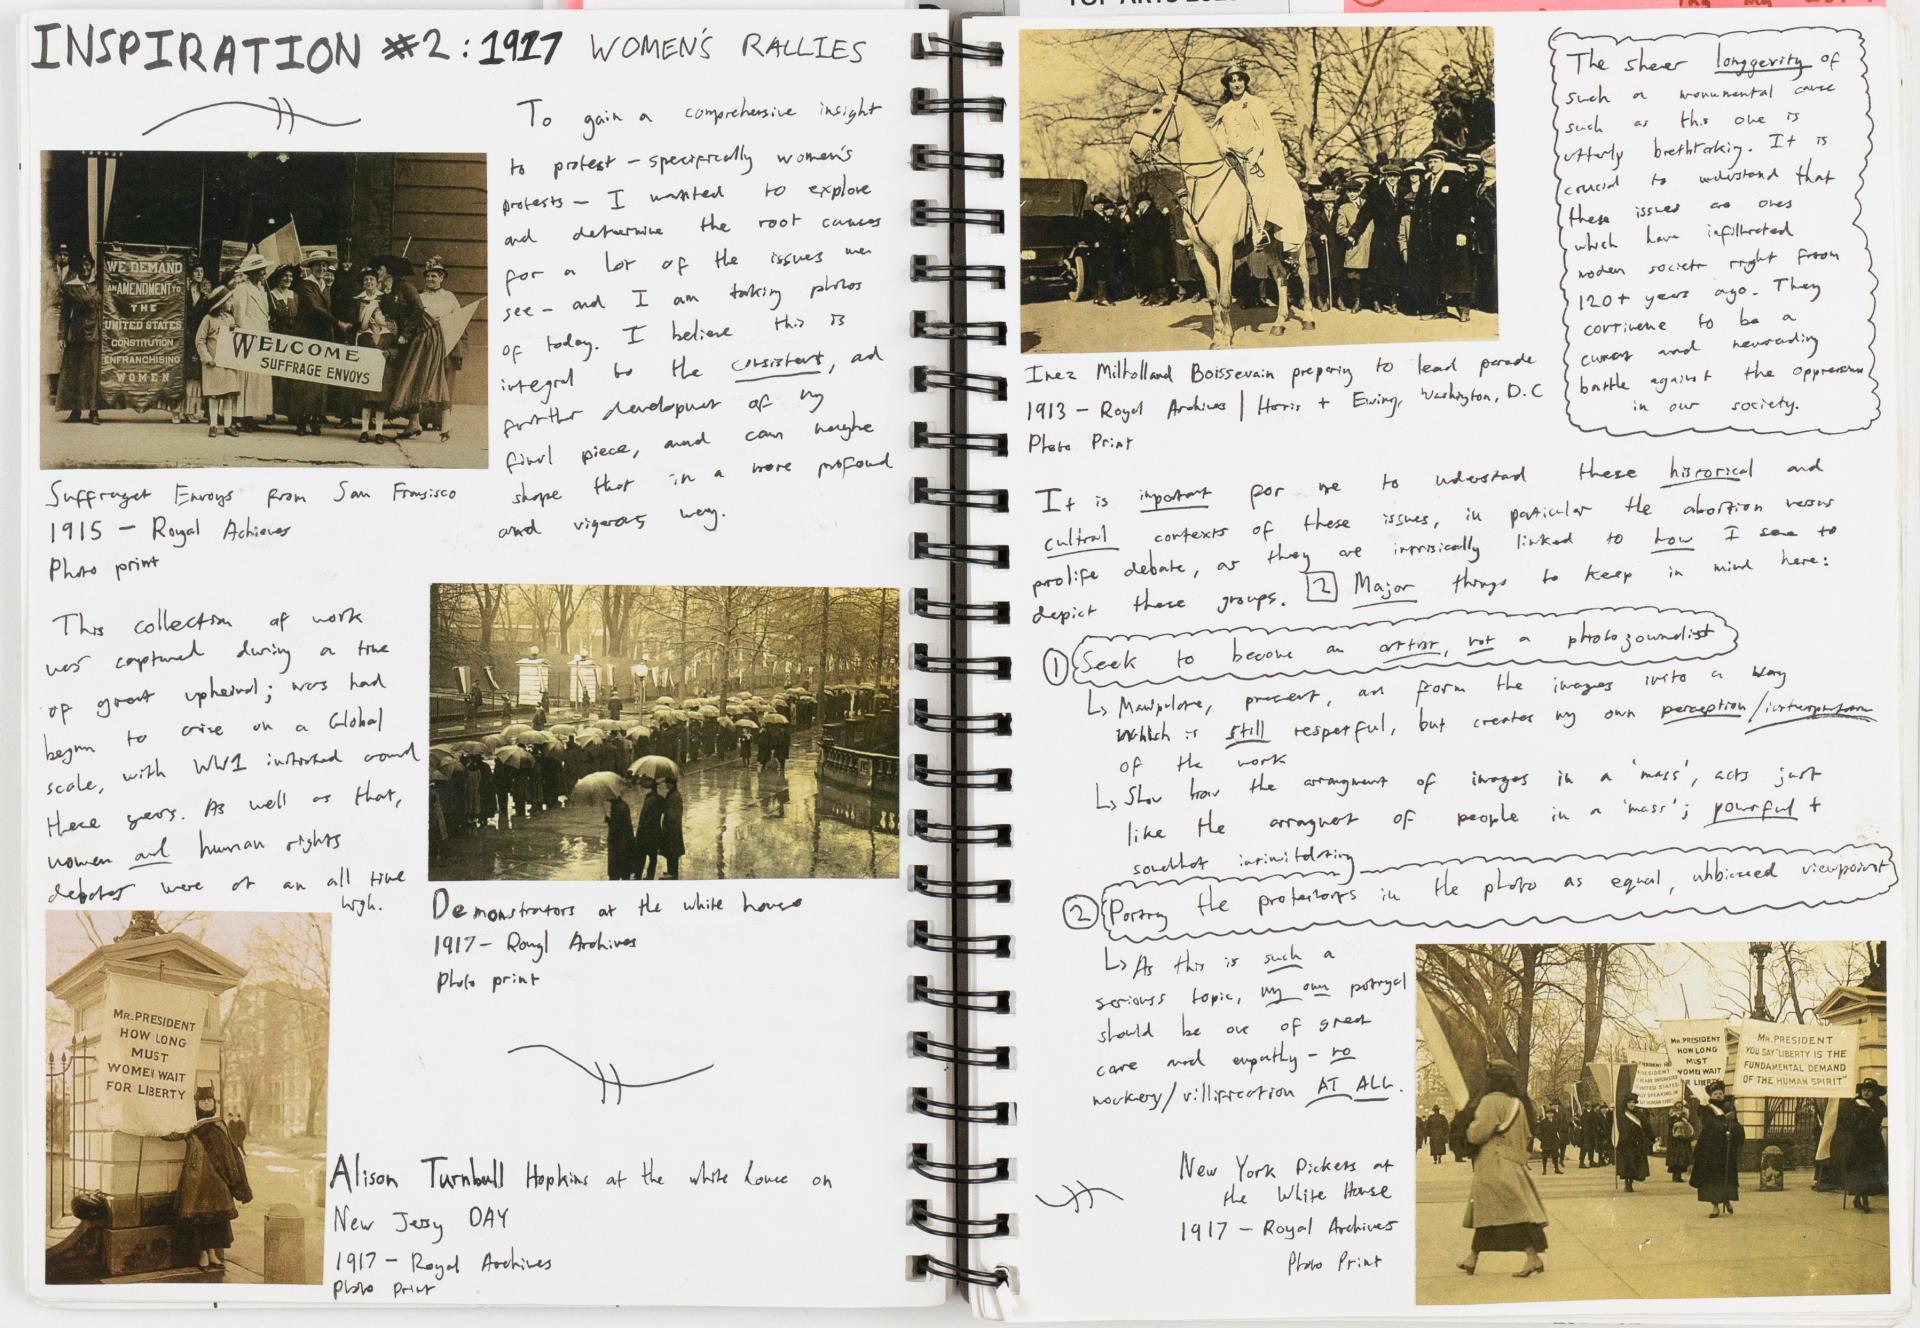 INSPIRATION #2: 1917 WOMEN'S RALLIES
To gain a comprehensive insight
to protest – specifically women's
protests – I wanted to explore
and determine the root causes
for a lot of the issues we
see – and I am taking photos
of today. I believe this is
integral to the consistent, ad
further development of my
final piece, and can maybe
shape that in a more profound
and vigorous way.
WE DEMAND
AN AMENDMENT TO
THE
UNITED STATES
CONSTITUTION
ENFRANCHISING
WOMEN
WELCOME
SUFFRAGE ENVOYS
Suffraget Envoys from San Fransisco
1915 – Royal Achieves
Photo print
This collection of work
was captured during a time
of great upheival; was had
began to arise on a Global
scale, with WW1 initiated around
these years. As well as that,
women and human rights
debates were at an all time
high.
Demonstrators at the white house
1917 – Royal Archives
Photo print
MR. PRESIDENT
HOW LONG
MUST
WOMEN WAIT
FOR LIBERTY
Alison Turnbull Hopkins at the white house on
New Jersy DAY
1917 – Royal Archives
Photo Print
TOP ARTS
Inez Miltolland Boissevain prepering to lead parade
1913 – Royal Archives | Harris + Ewing, Washington, D.C
Photo Print
The sheer longgevity of
such a monumental cause
such as this one is
utterly brethtaking. It is
crucial to understand that
these issues are ones
which have infiltrated
moden society right from
120+ years ago. They
continue to be a
current and neverending
battle against the oppression
in our society.
It is important for me to understand these historical and
cultral contexts of these issues, in particular the abortion versus
prolife debate, as they are intrisically linked to how I see to
depict these groups. 2 Major things to keep in mind here:
1 Seek to become an artist, not a photojournalist
↳ Manipulate, present, an form the images into a way
which is still respectful, but creates my own perception/interpretation
of the work
↳ Show how the arrangment of images in a 'mass', acts just
like the arrangment of people in a 'mass'; powerful +
somewhat intimidating
2 Portray the protestors in the photo as equal, unbiased viewpoint
↳ As this is such a
seriouss topic, my own potrayal
should be one of great
care and empathy – no
mockery/villification AT ALL.
MR. PRESIDENT
HOW LONG
MUST
WOMEN WAIT
FOR LIBERTY
MR. PRESIDENT
YOU SAY "LIBERTY IS THE
FUNDAMENTAL DEMAND
OF THE HUMAN SPIRIT"
New York Pickets at
the White House
1917 – Royal Archives
Photo Print